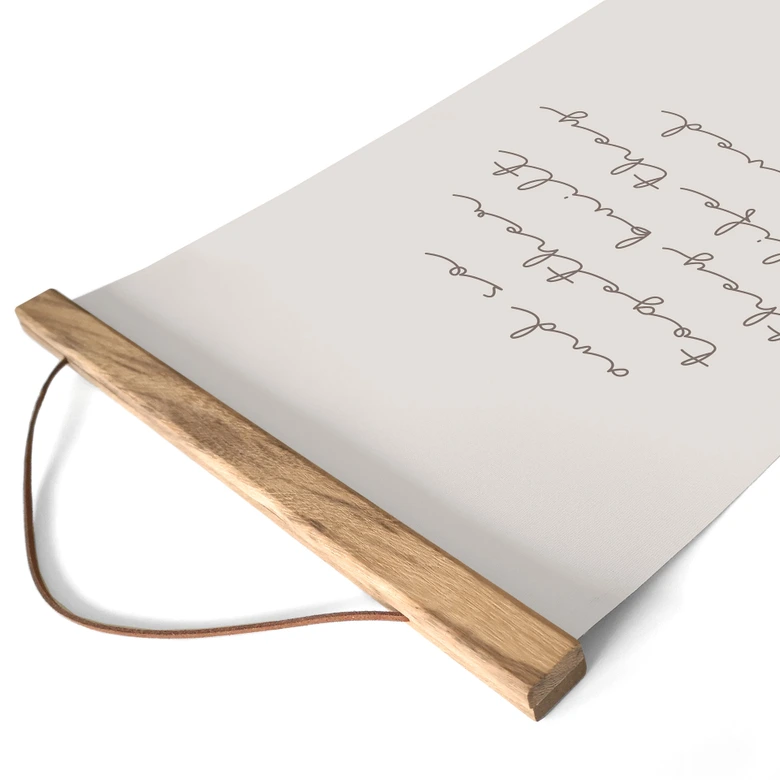 and so
together
they built
life they